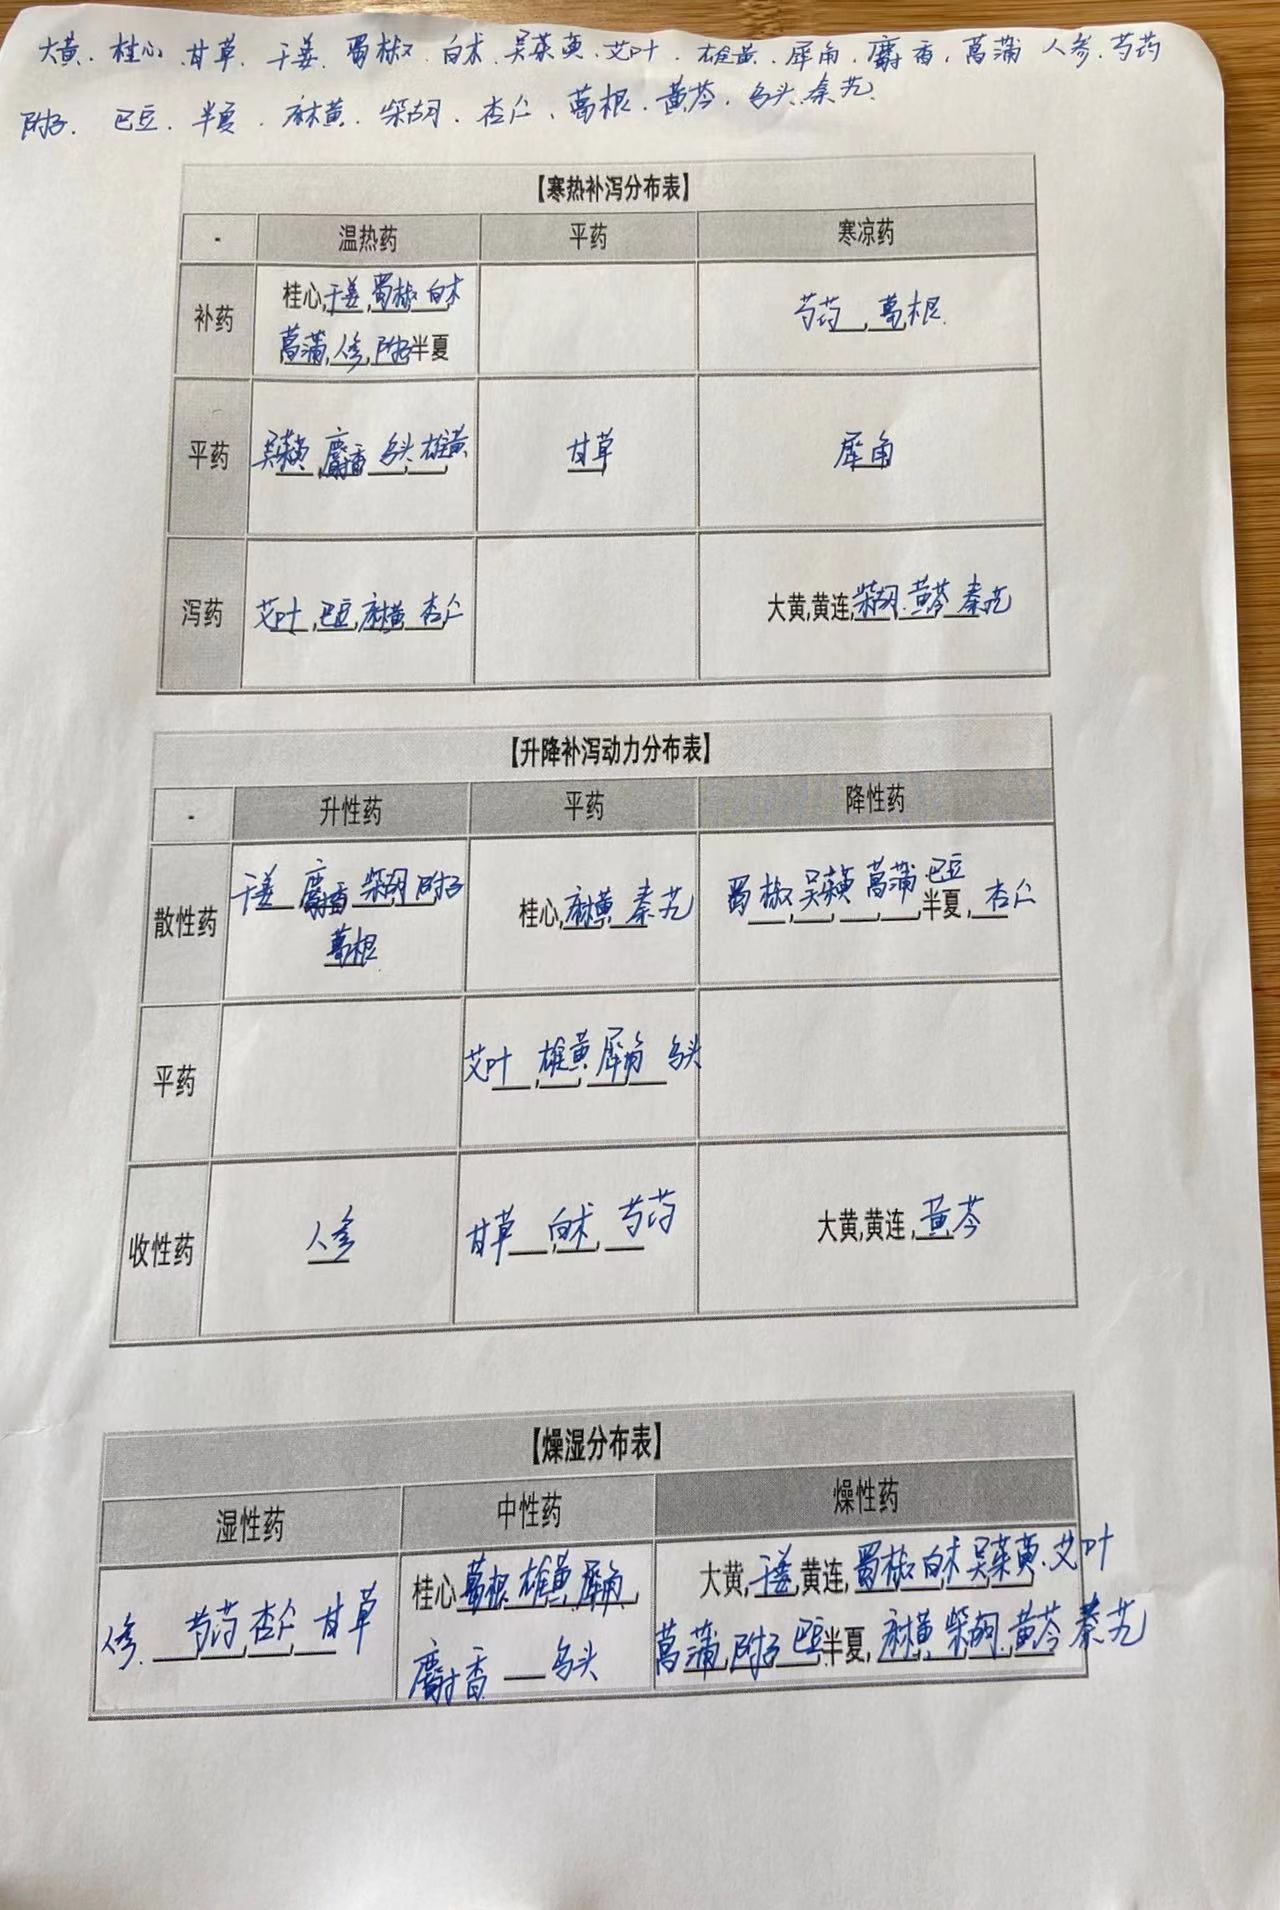 大黄、桂心、甘草、干姜、蜀椒、白术、吴茱萸、艾叶、雄黄、犀角、麝香、菖蒲 人参、芍药
附子、巴豆、半夏、麻黄、柴胡、杏仁、葛根、黄芩、乌头、秦艽
【寒热补泻分布表】
- 温热药 平药 寒凉药
补药 桂心,干姜,蜀椒 白术 芍药,葛根
菖蒲,人参,附子半夏
平药 吴茱萸,麝香 乌头,雄黄 甘草 犀角
泻药 艾叶,巴豆,麻黄 杏仁 大黄,黄连,柴胡,黄芩 秦艽
【升降补泻动力分布表】
- 升性药 平药 降性药
散性药 干姜 麝香 柴胡 附子 桂心,麻黄 秦艽 蜀椒,吴茱萸 菖蒲,巴豆
葛根 半夏,杏仁
平药 艾叶,雄黄 犀角 乌头
收性药 人参 甘草 白术,芍药 大黄,黄连,黄芩
【燥湿分布表】
湿性药 中性药 燥性药
人参、芍药 杏仁 甘草 桂心 葛根 雄黄,犀角, 大黄,干姜,黄连,蜀椒 白术 吴茱萸、艾叶
麝香 乌头 菖蒲,附子 巴豆半夏,麻黄 柴胡,黄芩 秦艽